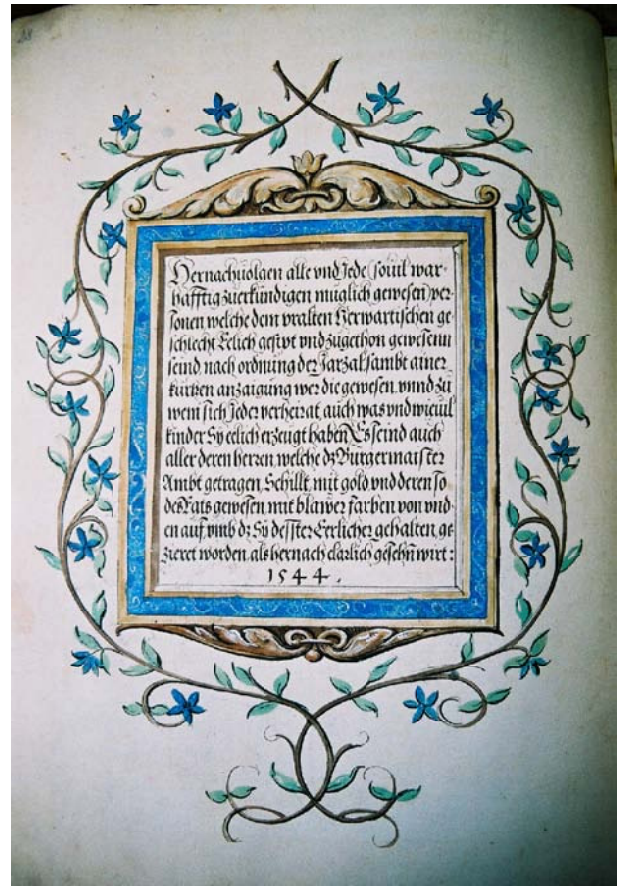 28
Hernachuolgen alle vnd Jede (souil war-
hafftig zuerkündigen müglich gewesen) per-
sonen welche dem vralten Herwartischen ge-
schlecht Eelich gesipt vnd zůgethon gewesenn
seind nach ordnung der Jarzal sambt ainer
kurtzen anzaigung wer die gewesen vnnd zů
wem sich Jeder verheirat auch was vnd wieuil
kinder Sy eelich erzeugt haben Es seind auch
aller deren herren welche dz Burgermaister
Ambt getragen Schillt mit gold vnd deren so
des Rats gewesen mit blawer farben von vnd-
en auf vmb dz Sy desster Eerlicher gehalten ge
zieret worden als hernach clarlich gesehn wirt :
1544 .